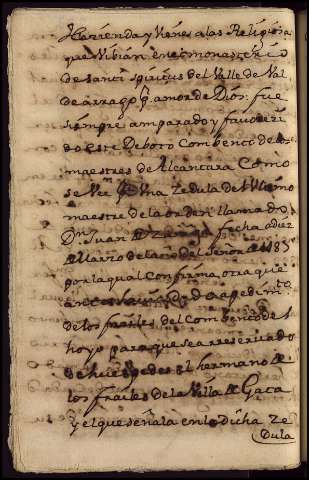 Hazienda y Vienes a las Religiosas
que Vibian en el monasterio
de santi spiritus del Valle de Val
de arrago pr amor de Dios. fue
siempre amparado y favoreci
do este Deboto Combento de los
maestres de Alcantara Como
se Vee por Vna Zedula del Vltimo
maestre de la orden llamado
Dn Juan de Zuñiga fecha a diez
de Marzo del año del Señor de 1483
por la qual Confirma otra que
antes havia dado a pedimto
de los frailes del Combento de l
hoyo para que sea reservado
de huespedes el hermano de
los frailes de la Villa de Gata
y el que señala en la dicha Ze
dula